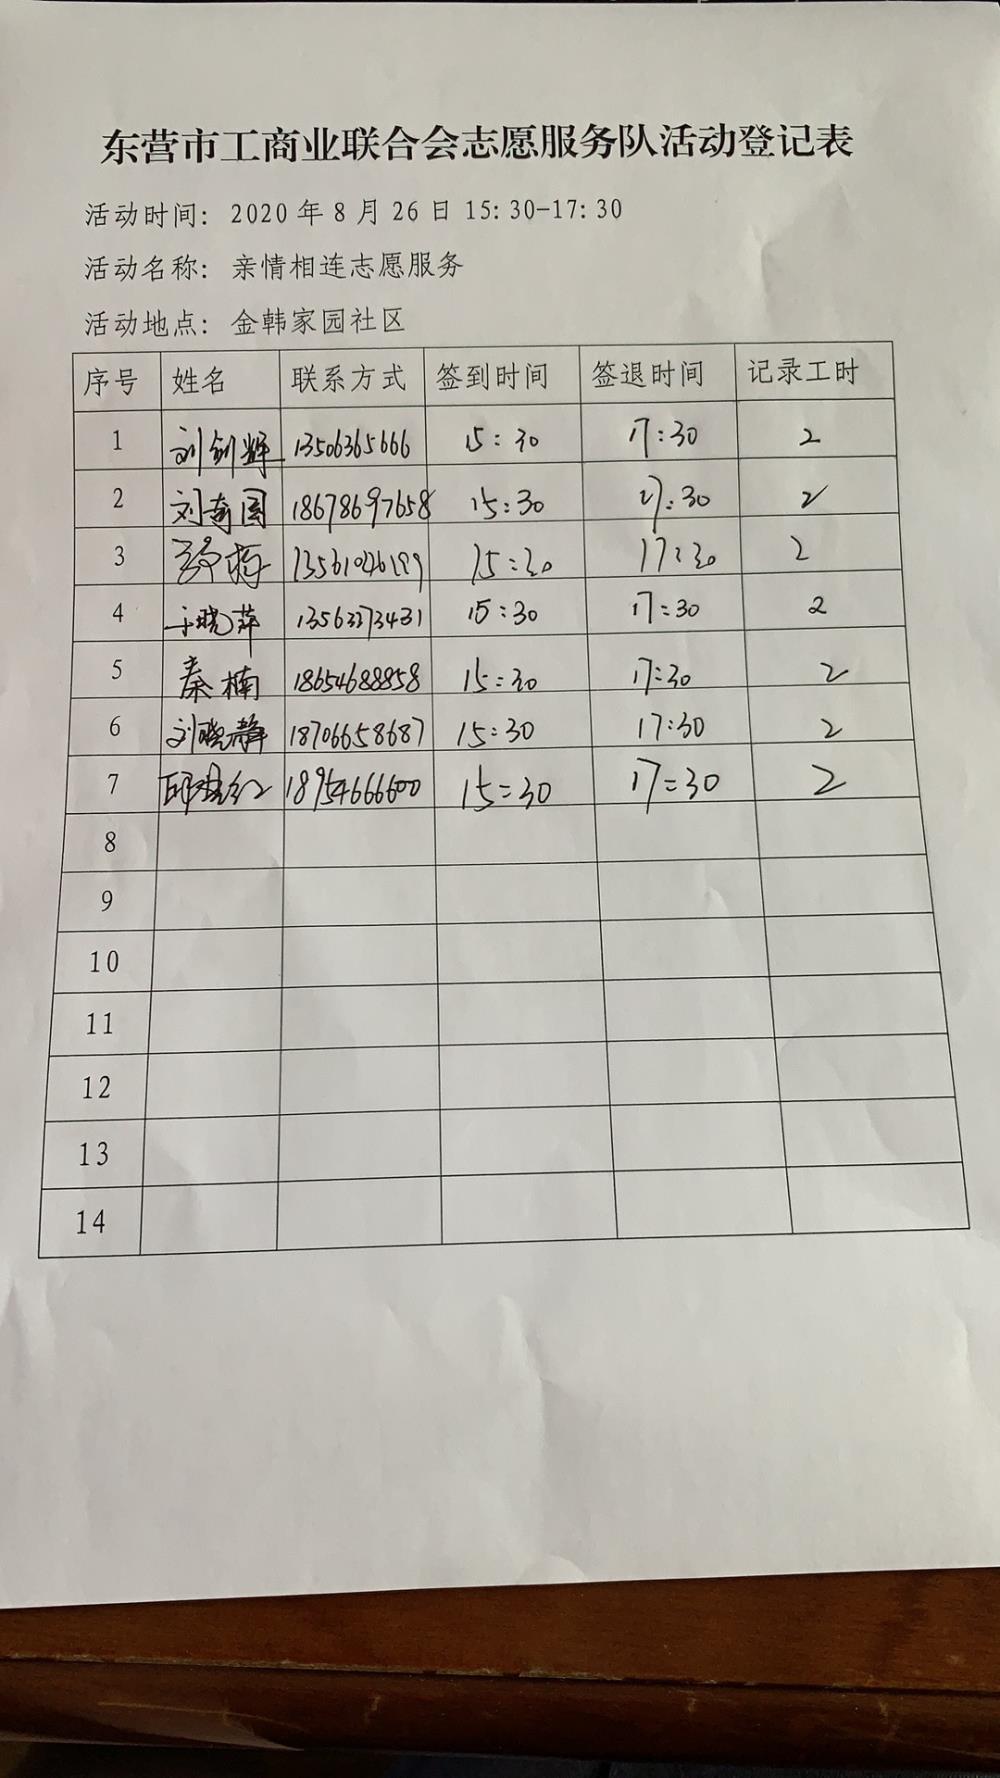 东营市工商业联合会志愿服务队活动登记表
活动时间: 2020年8月26日 15:30-17:30
活动名称: 亲情相连志愿服务
活动地点: 金韩家园社区
序号 姓名 联系方式 签到时间 签退时间 记录工时
1 刘剑辉 13506365666 15:30 17:30 2
2 刘奇国 18678697658 15:30 17:30 2
3 15:30 17:30 2
4 于晓萍 13563373431 15:30 17:30 2
5 秦楠 18654688858 15:30 17:30 2
6 刘晓静 18706658687 15:30 17:30 2
7 18954666600 15:30 17:30 2
8
9
10
11
12
13
14